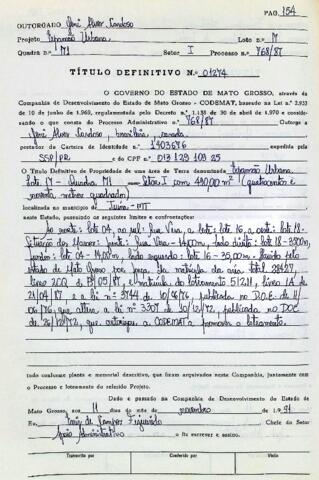 PAG. 154
OUTORGADO José Alves Cardoso
Projeto Expansão Urbana Lote n.º 17
Quadra n.º M1 Setor I Processo n.º 768/87
TÍTULO DEFINITIVO N.º 01274
O GOVERNO DO ESTADO DE MATO GROSSO, através da
Companhia de Desenvolvimento do Estado de Mato Grosso - CODEMAT, baseado na Lei n.º 2.933
de 10 de junho de 1969, regulamentada pelo Decreto n.º 1.138 de 30 de abril de 1970 e considerando
o que consta do Processo Administrativo n.º 768/87 Outorga a
José Alves Cardoso, brasileiro, casado
portador da Carteira de Identidade n.º 1403676 expedida pela
SSP/PR e do CPF n.º 013 129 109 25
O Título Definitivo de Propriedade de uma Área de Terra denominada Expansão Urbana
Lote 17 - Quadra M1 - Setor I com 490,00 m² (quatrocentos e
noventa metros quadrados)
localizada no município de Juína - MT
neste Estado, possuindo os seguintes limites e confrontações:
Ao norte: lote 04, ao sul: Rua Viva, a leste: lote 16, a oeste: lote 18.
frente: Rua Viva - 14,00m, lado direito: lote 18 - 35,00m,
fundos: lote 04 - 14,00m, lado esquerdo: lote 16 - 35,00m.
Estado de Mato Grosso por força da matrícula da área total
livro 2 e matrícula do loteamento 51211, livro 1A de
21/04/87 e a lei nº 3744 de 10/06/76, publicada no D.O.E. de 11/
06/76, que altera a lei nº 3307 de 10/12/72, publicada no DOE
de 26/12/72, que autorizou a CODEMAT a promover o loteamento.
tudo conforme planta e memorial descritivo, que foram arquivados nesta Companhia, juntamente com
o Processo e loteamento do referido Projeto.
Dado e passado na Companhia de Desenvolvimento do Estado de
Mato Grosso, aos 11 dias do mês de novembro de 1.991
Eu, Luiz de Campos Figueiredo Chefe do Setor
Apoio Administrativo o fiz escrever e assino.
Transcrito por Conferido por Visto